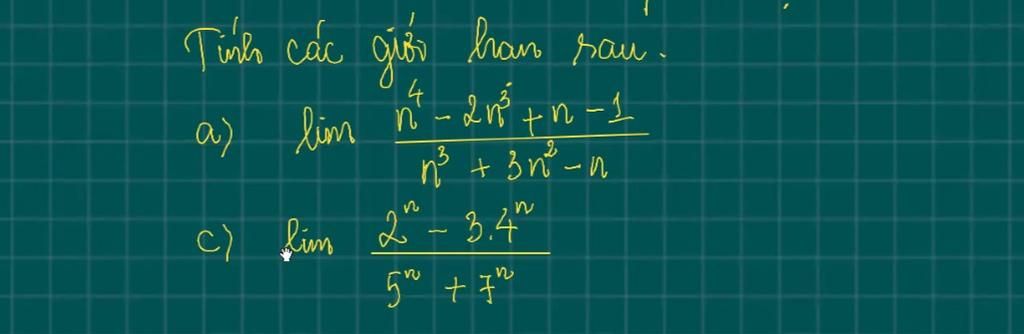 Tính các giới hạn sau.
a) lim \frac{n^4 - 2n^3 + n - 1}{n^3 + 3n^2 - n}
c) lim \frac{2^n - 3.4^n}{5^n + 7^n}